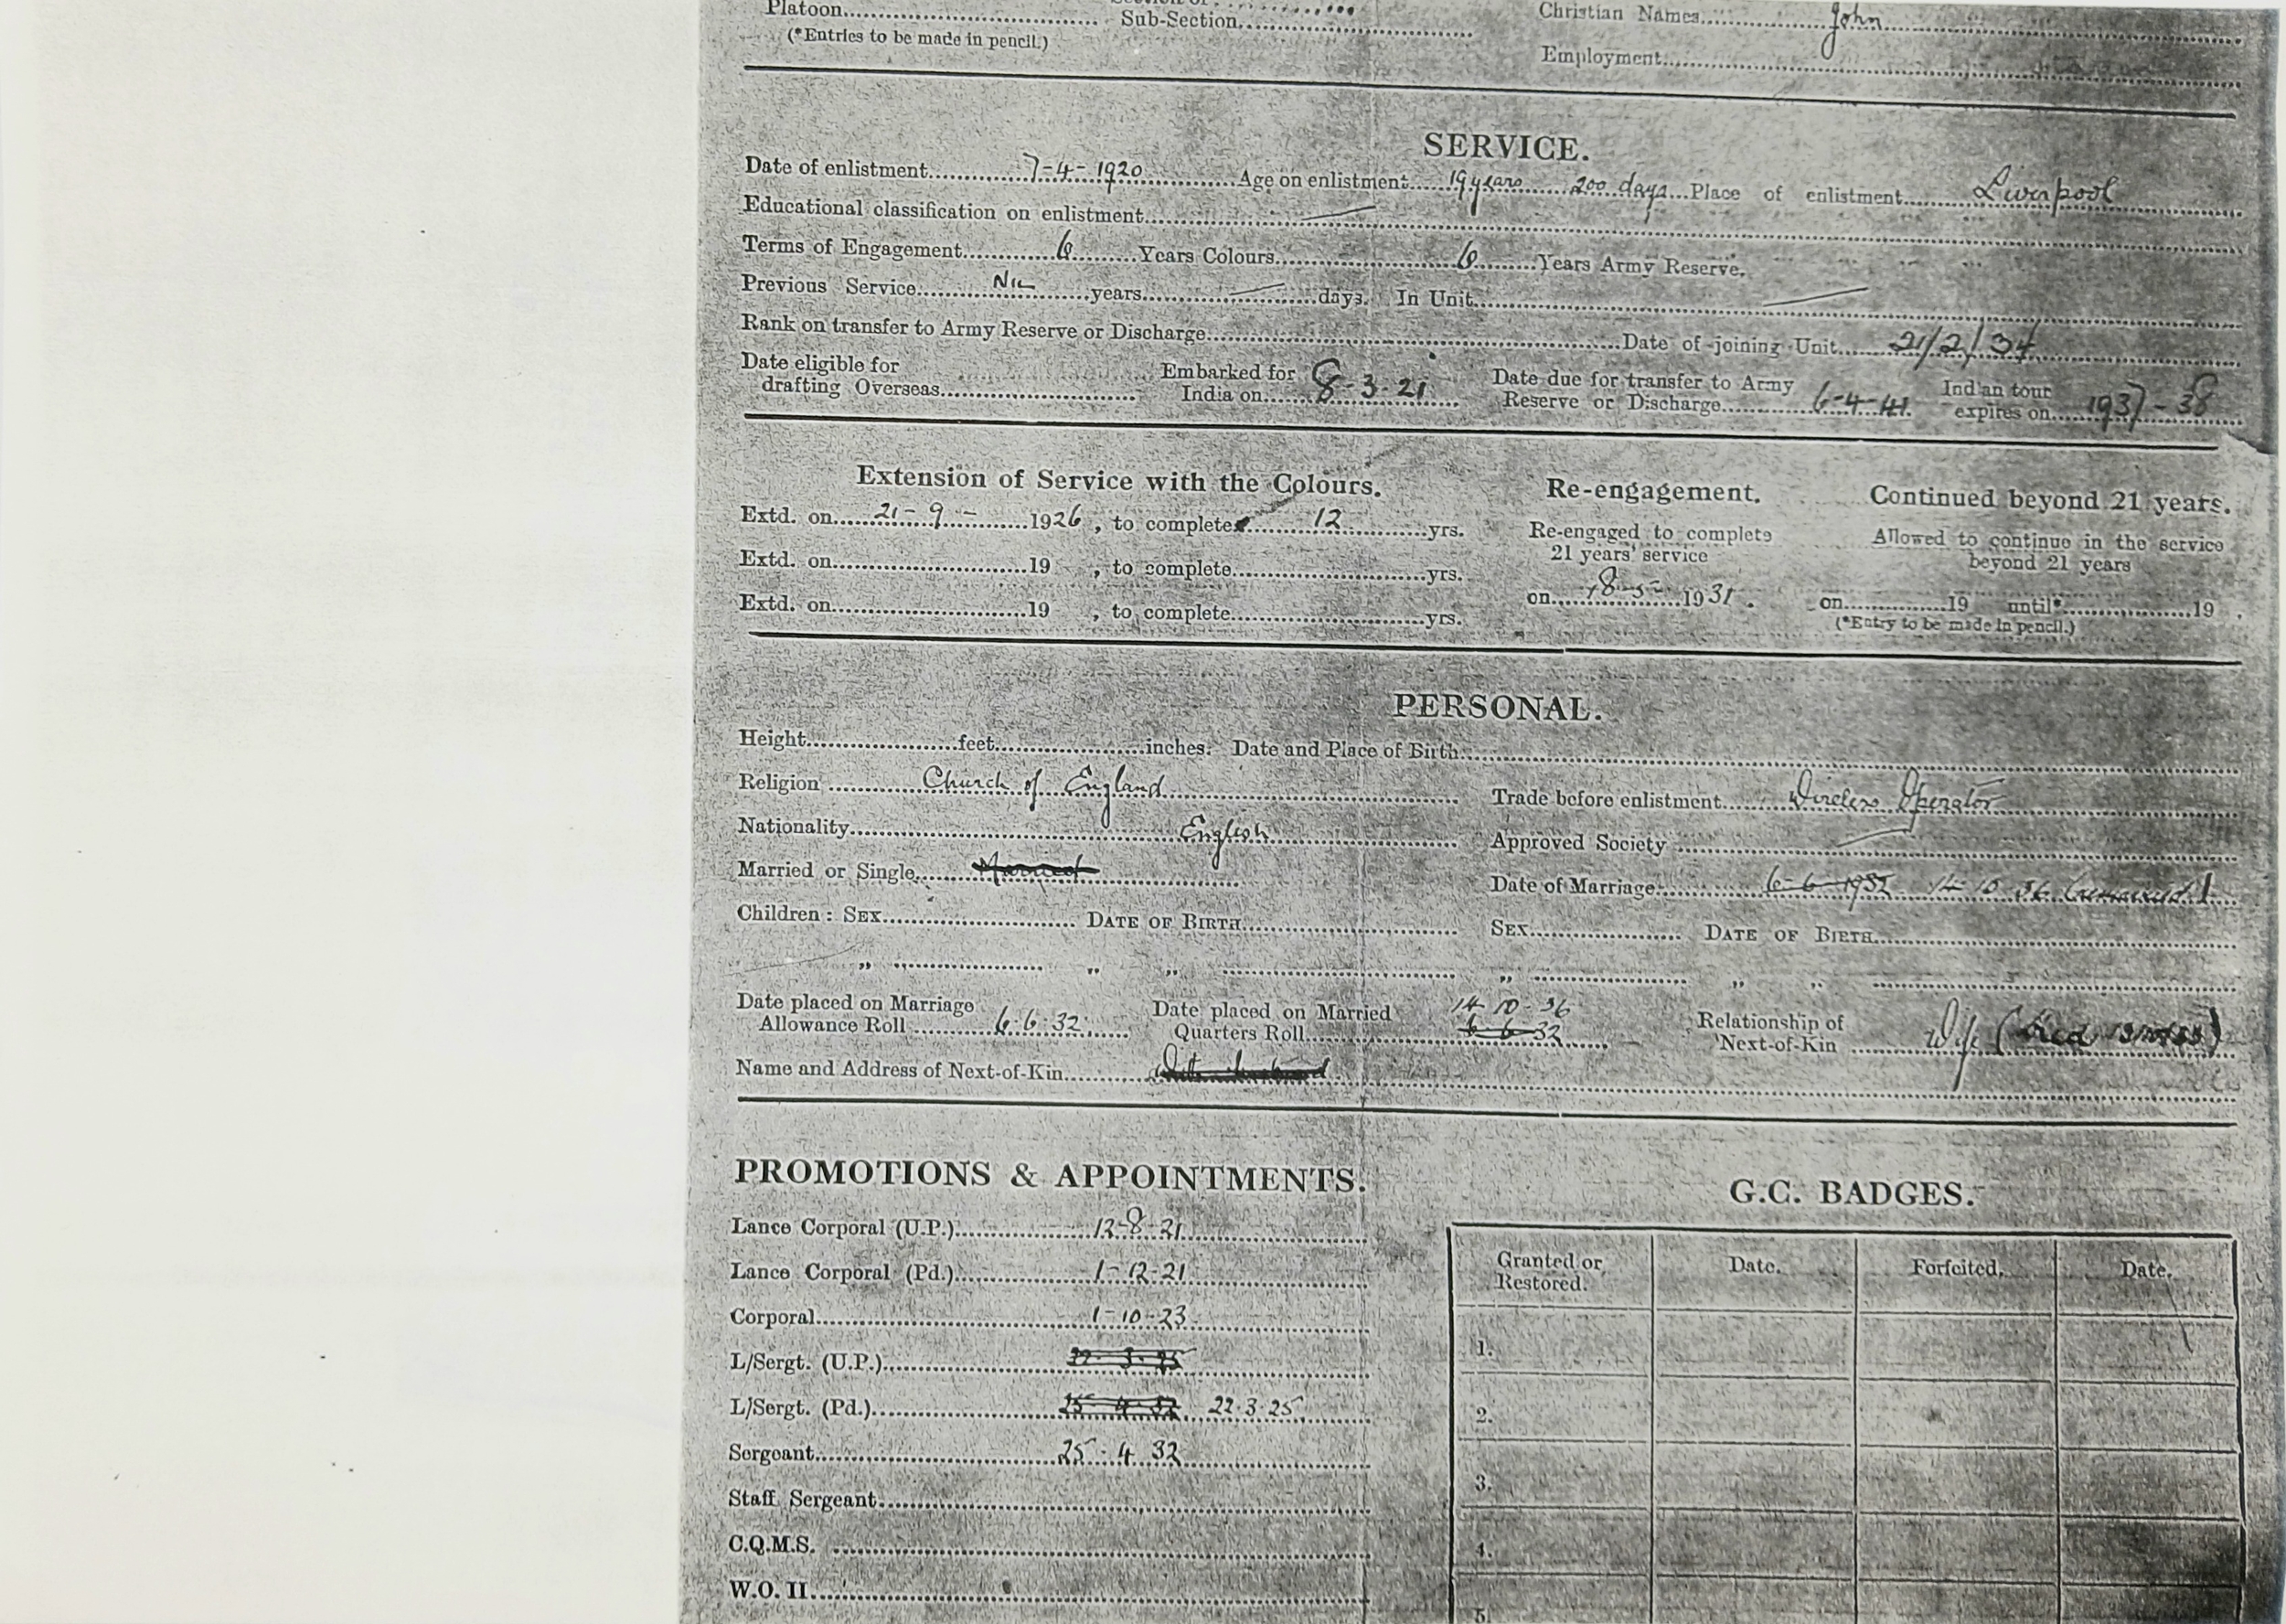 Platoon
Sub-Section
Christian Names John
(*Entries to be made in pencil.)
Employment
SERVICE.
Date of enlistment 7-4-1920 Age on enlistment 19 years 200 days Place of enlistment Liverpool
Educational classification on enlistment
Terms of Engagement 6 Years Colours 6 Years Army Reserve.
Previous Service NIL years days. In Unit
Rank on transfer to Army Reserve or Discharge Date of joining Unit 21/2/34
Date eligible for drafting Overseas Embarked for India on 8-3-21 Date due for transfer to Army Reserve or Discharge 6-4-41. Indian tour expires on 1937-38
Extension of Service with the Colours.
Re-engagement.
Continued beyond 21 years.
Extd. on 21-9- 1926, to complete 12 yrs.
Re-engaged to complete 21 years' service
Allowed to continue in the service beyond 21 years
Extd. on 19 , to complete yrs.
Extd. on 19 , to complete yrs.
on 18-5- 1931.
on 19 until* 19 .
(*Entry to be made in pencil.)
PERSONAL.
Height feet inches. Date and Place of Birth
Religion Church of England Trade before enlistment Wireless Operator
Nationality English Approved Society
Married or Single Married Date of Marriage 6-6-1932 14-10-36
Children: SEX DATE OF BIRTH SEX DATE OF BIRTH
" " " " " "
Date placed on Marriage Allowance Roll 6.6.32. Date placed on Married Quarters Roll 14-10-36 6-6-32 Relationship of Next-of-Kin Wife
Name and Address of Next-of-Kin
PROMOTIONS & APPOINTMENTS.
G.C. BADGES.
Lance Corporal (U.P.) 12-8-21
Lance Corporal (Pd.) 1-12-21
Corporal 1-10-23
L/Sergt. (U.P.) 22-3-25
L/Sergt. (Pd.) 25-4-32 22.3.25
Sergeant 25.4.32
Staff Sergeant
C.Q.M.S.
W.O. II
Granted or Restored. Date. Forfeited. Date.
1.
2.
3.
4.
5.